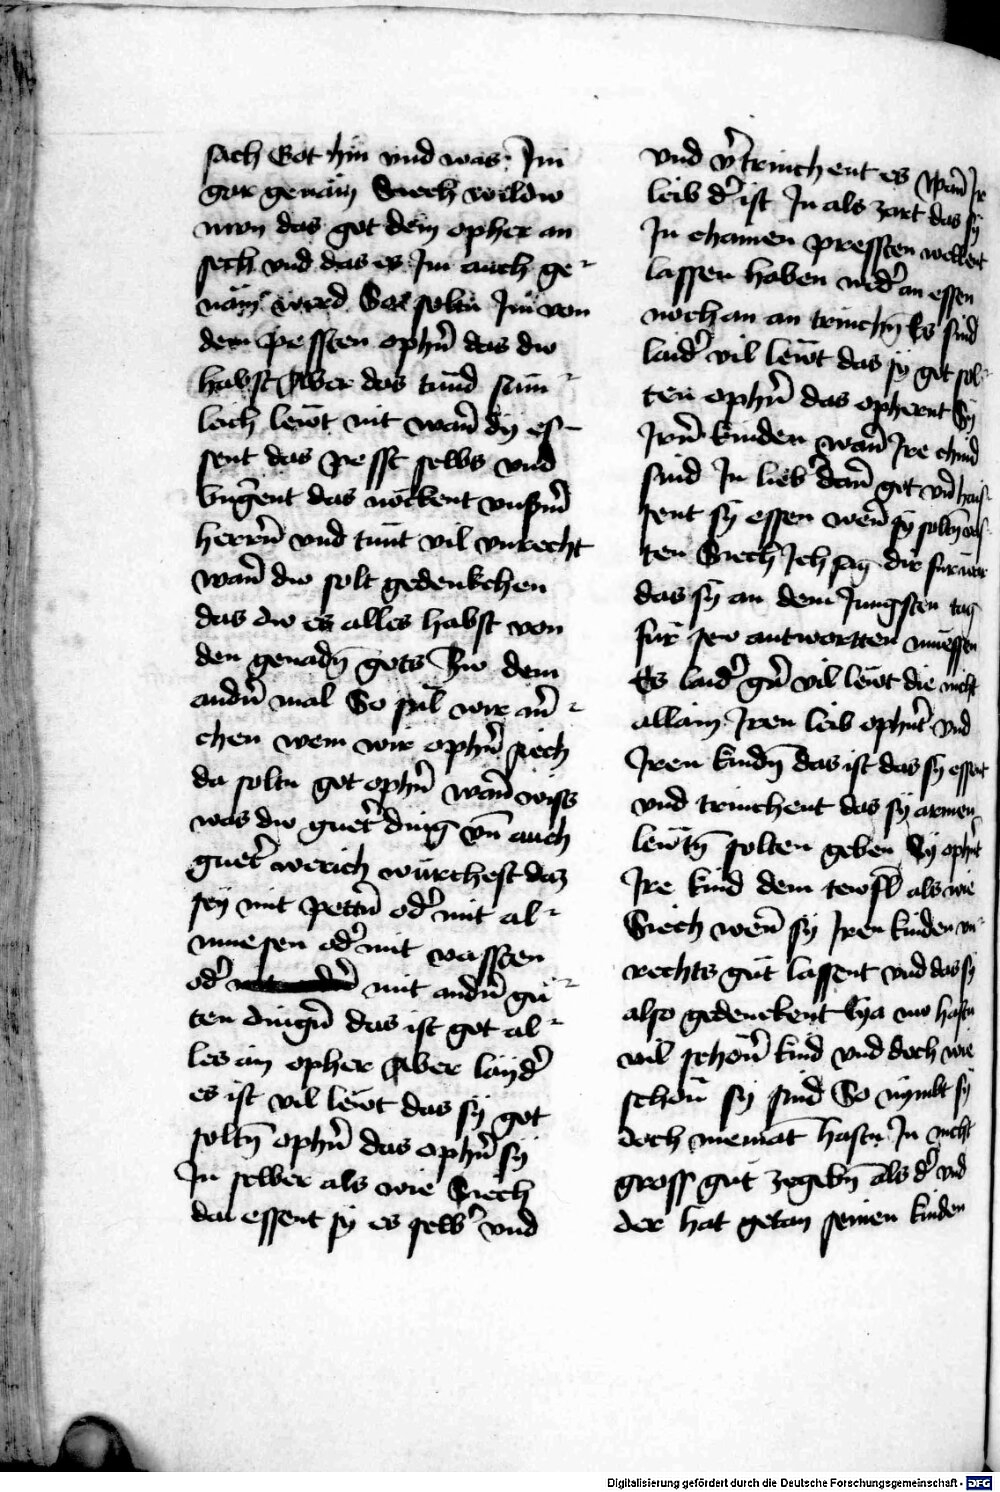 sach Got hin vnd was Im
gar genäm Siech wildw
nwn das got dein opher an
sech vnd das es Im auch ge-
näm werd So soltu Im von
dem pessten ophn̄ das dw
habst Aber das tund süm-
leich lewt nit wan̄ dy es-
sent das pesst selbs vnd
das vnserm
herrn̄ vnd tunt vil vnrecht
wan̄ dw solt gedenkchen
das dw es alles habst von
den genadn̄ gots Zw dem
andn̄ mal So sul wir mer-
chen wem wir ophn̄ siech
da soltu got ophn̄ wan̄ wiss
was dw guet' ding vn̄ auch
guet' werich würchest daz
sey mit petn̄ od' mit al-
muesen od' mit vassten
od' mit andn̄ gu-
ten dingn̄ das ist got al-
les ain opher Aber layd'
es ist vil lewt das sy got
soltn̄ ophn̄ das ophn̄ sy
In selber als wie Siech
da essent sy es selb' vnd
vnd v'trinchent es wan̄ Ir
leib d' ist In als zart das sy
In chainen pressten wellent
lassen haben wed' an essen
noch an an trinchn̄ Es sind
laid' vil lewt das sy got sol-
ten ophn̄ das ophernt sy
Irn̄ kinden wan̄ Ire chind
sind In lieb' dan̄ got vnd
sy essen wen̄ sy soltn̄ vas-
ten Siech Ich sag dir furwar
das sy an dem Jungsten tag
für sew antwortten müessen
Es laid' vil lewt die nicht
allain Iren leib ophnt vnd
Iren kindn̄ das ist das sy essent
vnd trinchent das sy armen
lewtn̄ solten geben Sy ophnt
Ire kind dem tewfl als wie
Siech wen̄ sy Iren kinden vn-
rechts gut lassent vnd das sy
also gedenckent Eya nw hastu
vil schon̄ kind vnd doch wie
schon̄ sy sind So nymbt sy
doch niemāt hastu In nicht
gross gut zegebn̄ als d' vnd
der hat getan seinen kinden
Digitalisierung gefördert durch die Deutsche Forschungsgemeinschaft - DFG